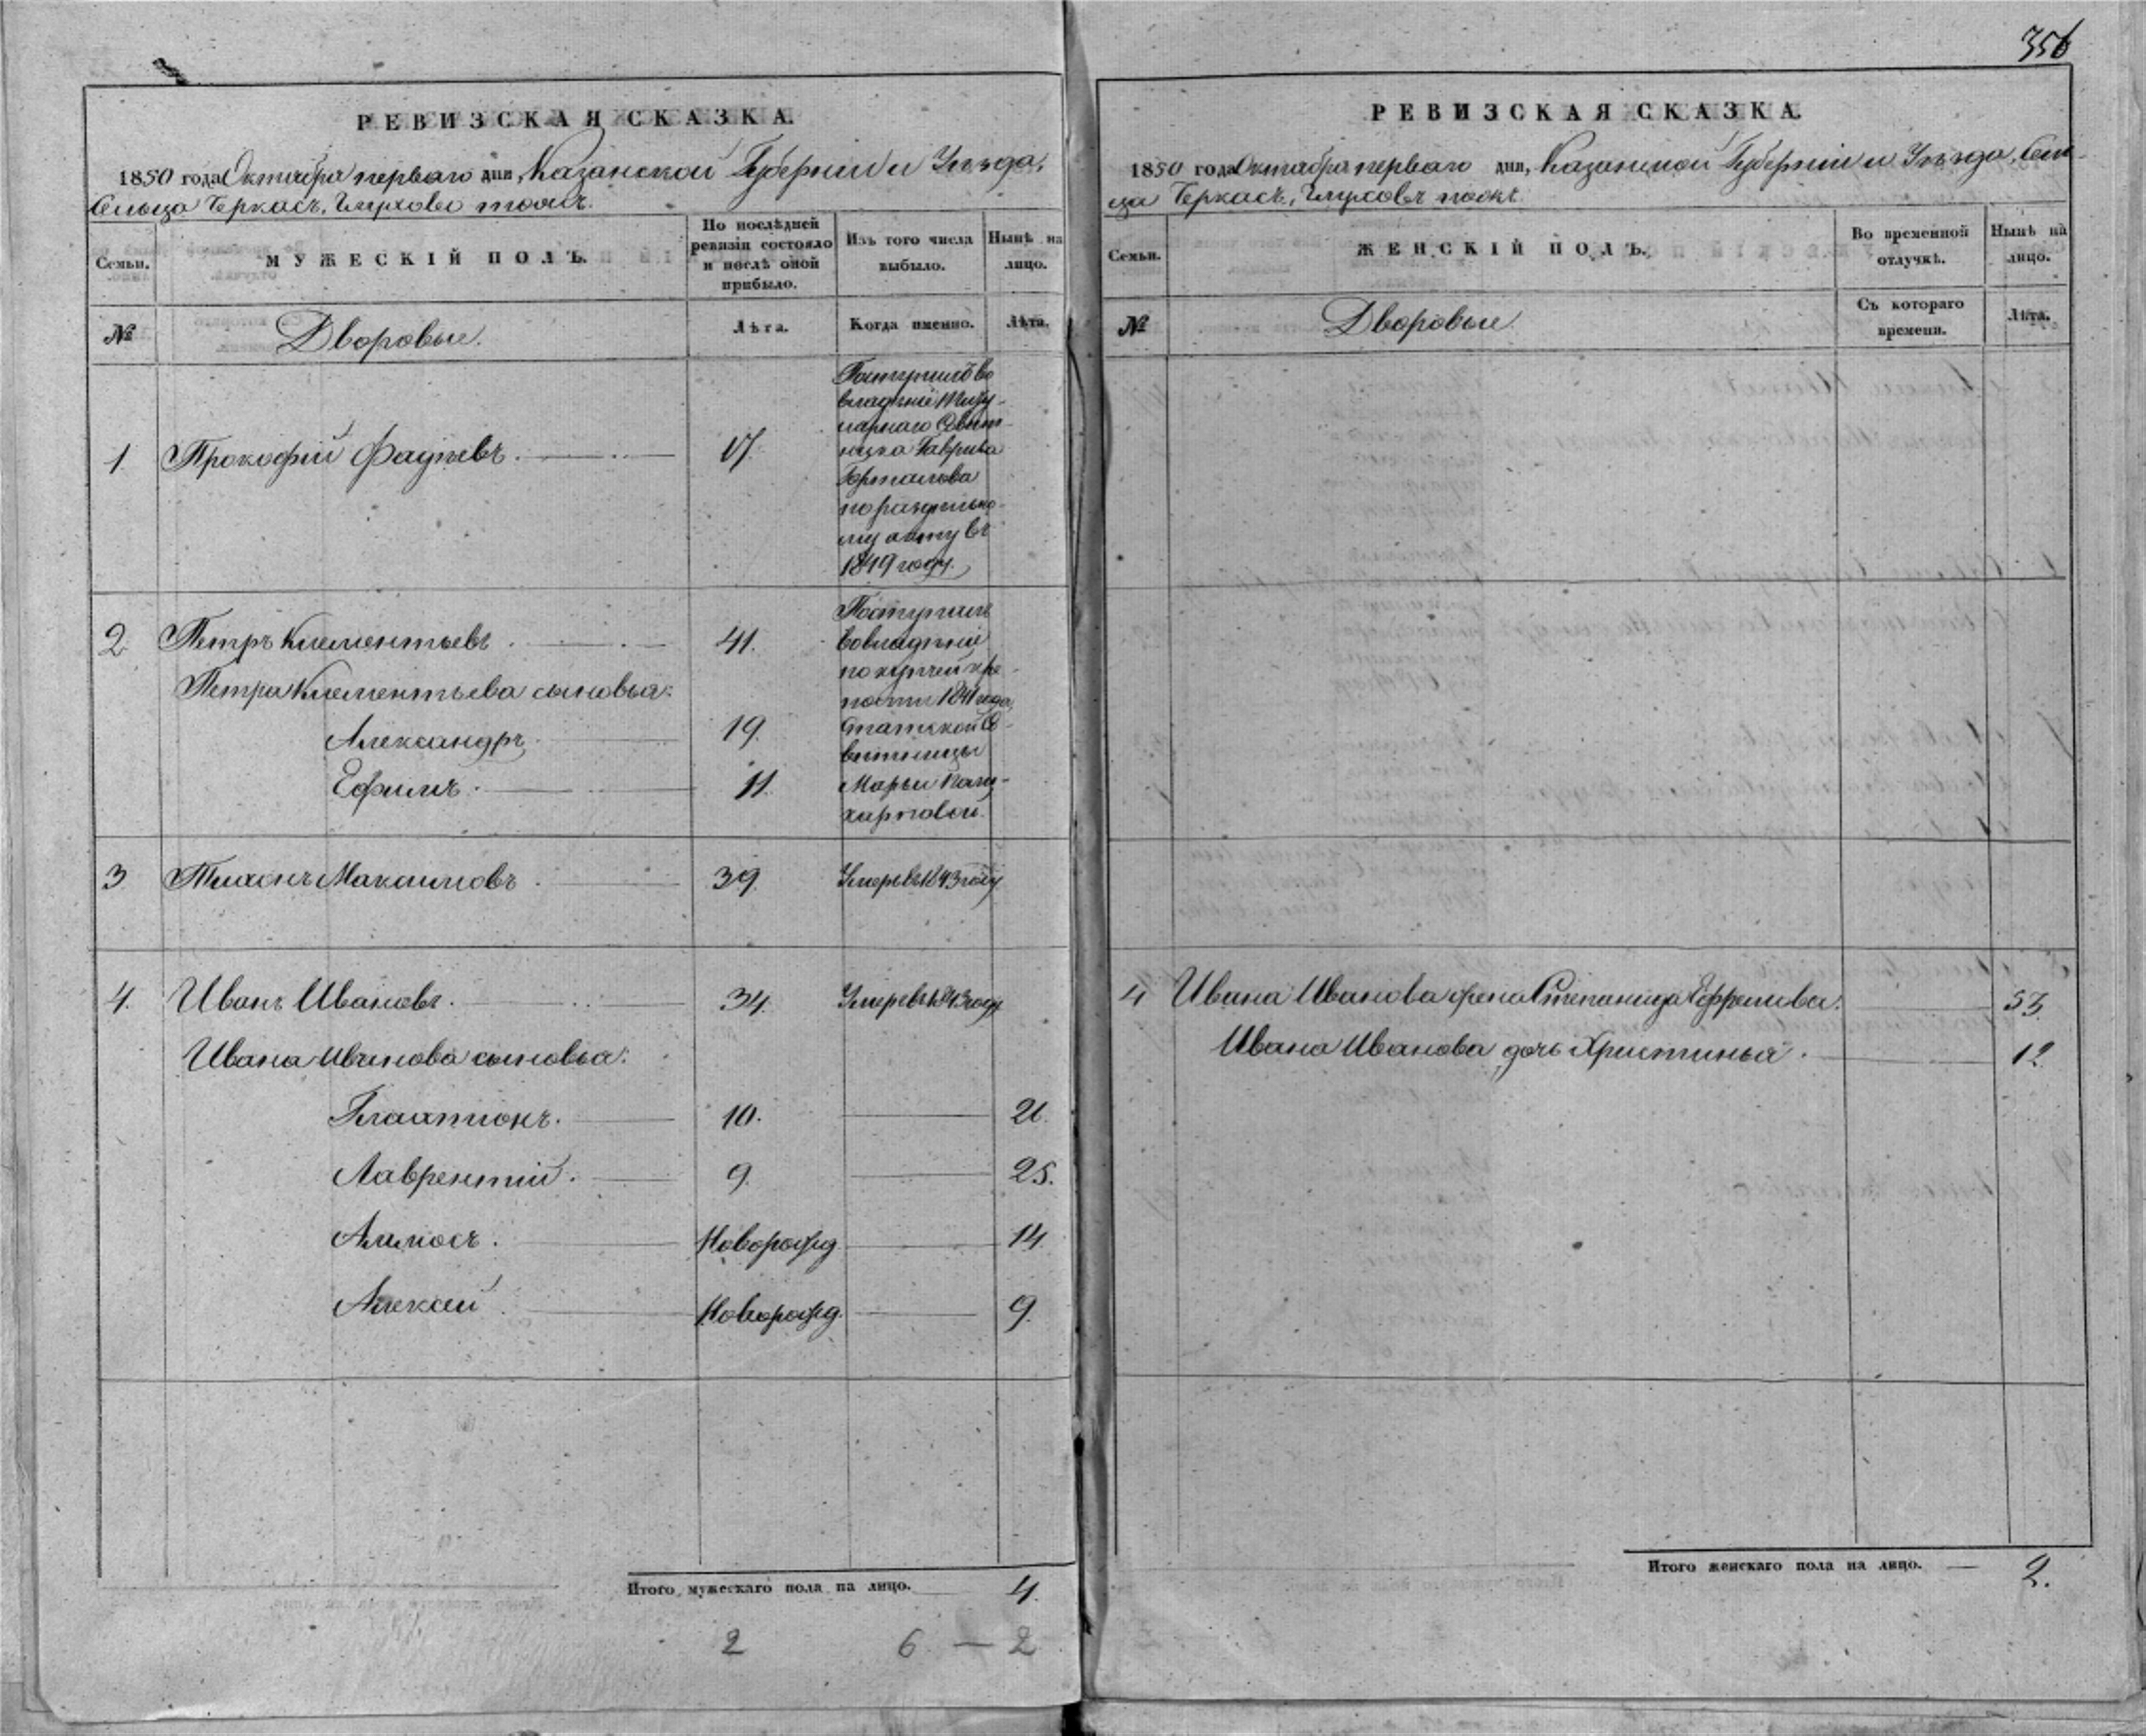 356
РЕВИЗСКАЯ СКАЗКА.
1850 года Октября перваго дня, Казанской Губерніи и Уѣзда,
Сельца Черкасъ,
Семьи.
МУЖЕСКІЙ ПОЛЪ.
По послѣдней ревизіи состояло и послѣ оной прибыло.
Изъ того числа выбыло.
Нынѣ на лицо.
№
Дворовые.
Лѣта.
Когда именно.
Лѣта.
1 Прокофій Фадѣевъ. 17.
Поступилъ во
владѣніе Титу-
лярнаго Совѣт-
ника Гаврила
по раздѣльно-
му акту въ
1849 году.
2 Петръ Клементьевъ 41.
Петра Клементьева сыновья:
Александръ 19.
Ефимъ 11.
Поступили
во владѣніе
по купчей крѣ-
пости 1841 года,
Статской Со-
вѣтницы
Марьи
3 Тихонъ Максимовъ 39. Умеръ въ 1843 году
4. Иванъ Ивановъ. 34. Умеръ въ 1843 году
Ивана Иванова сыновья:
Плахтіонъ. 10.
Лаврентій. 9. 25.
Новорожд. 14.
Алексей Новорожд. 9.
Итого мужескаго пола на лицо. 4.
2 6 — 2
РЕВИЗСКАЯ СКАЗКА.
1850 года Октября перваго дня, Казанской Губерніи и Уѣзда, Сель-
ца Черкасъ,
Семьи.
ЖЕНСКІЙ ПОЛЪ.
Во временной отлучкѣ.
Нынѣ на лицо.
№
Дворовые
Съ котораго времени.
Лѣта.
4 Ивана Иванова жена Степанида Ефремова. 53.
Ивана Иванова дочь Христинья. 12.
Итого женскаго пола на лицо. — 2.